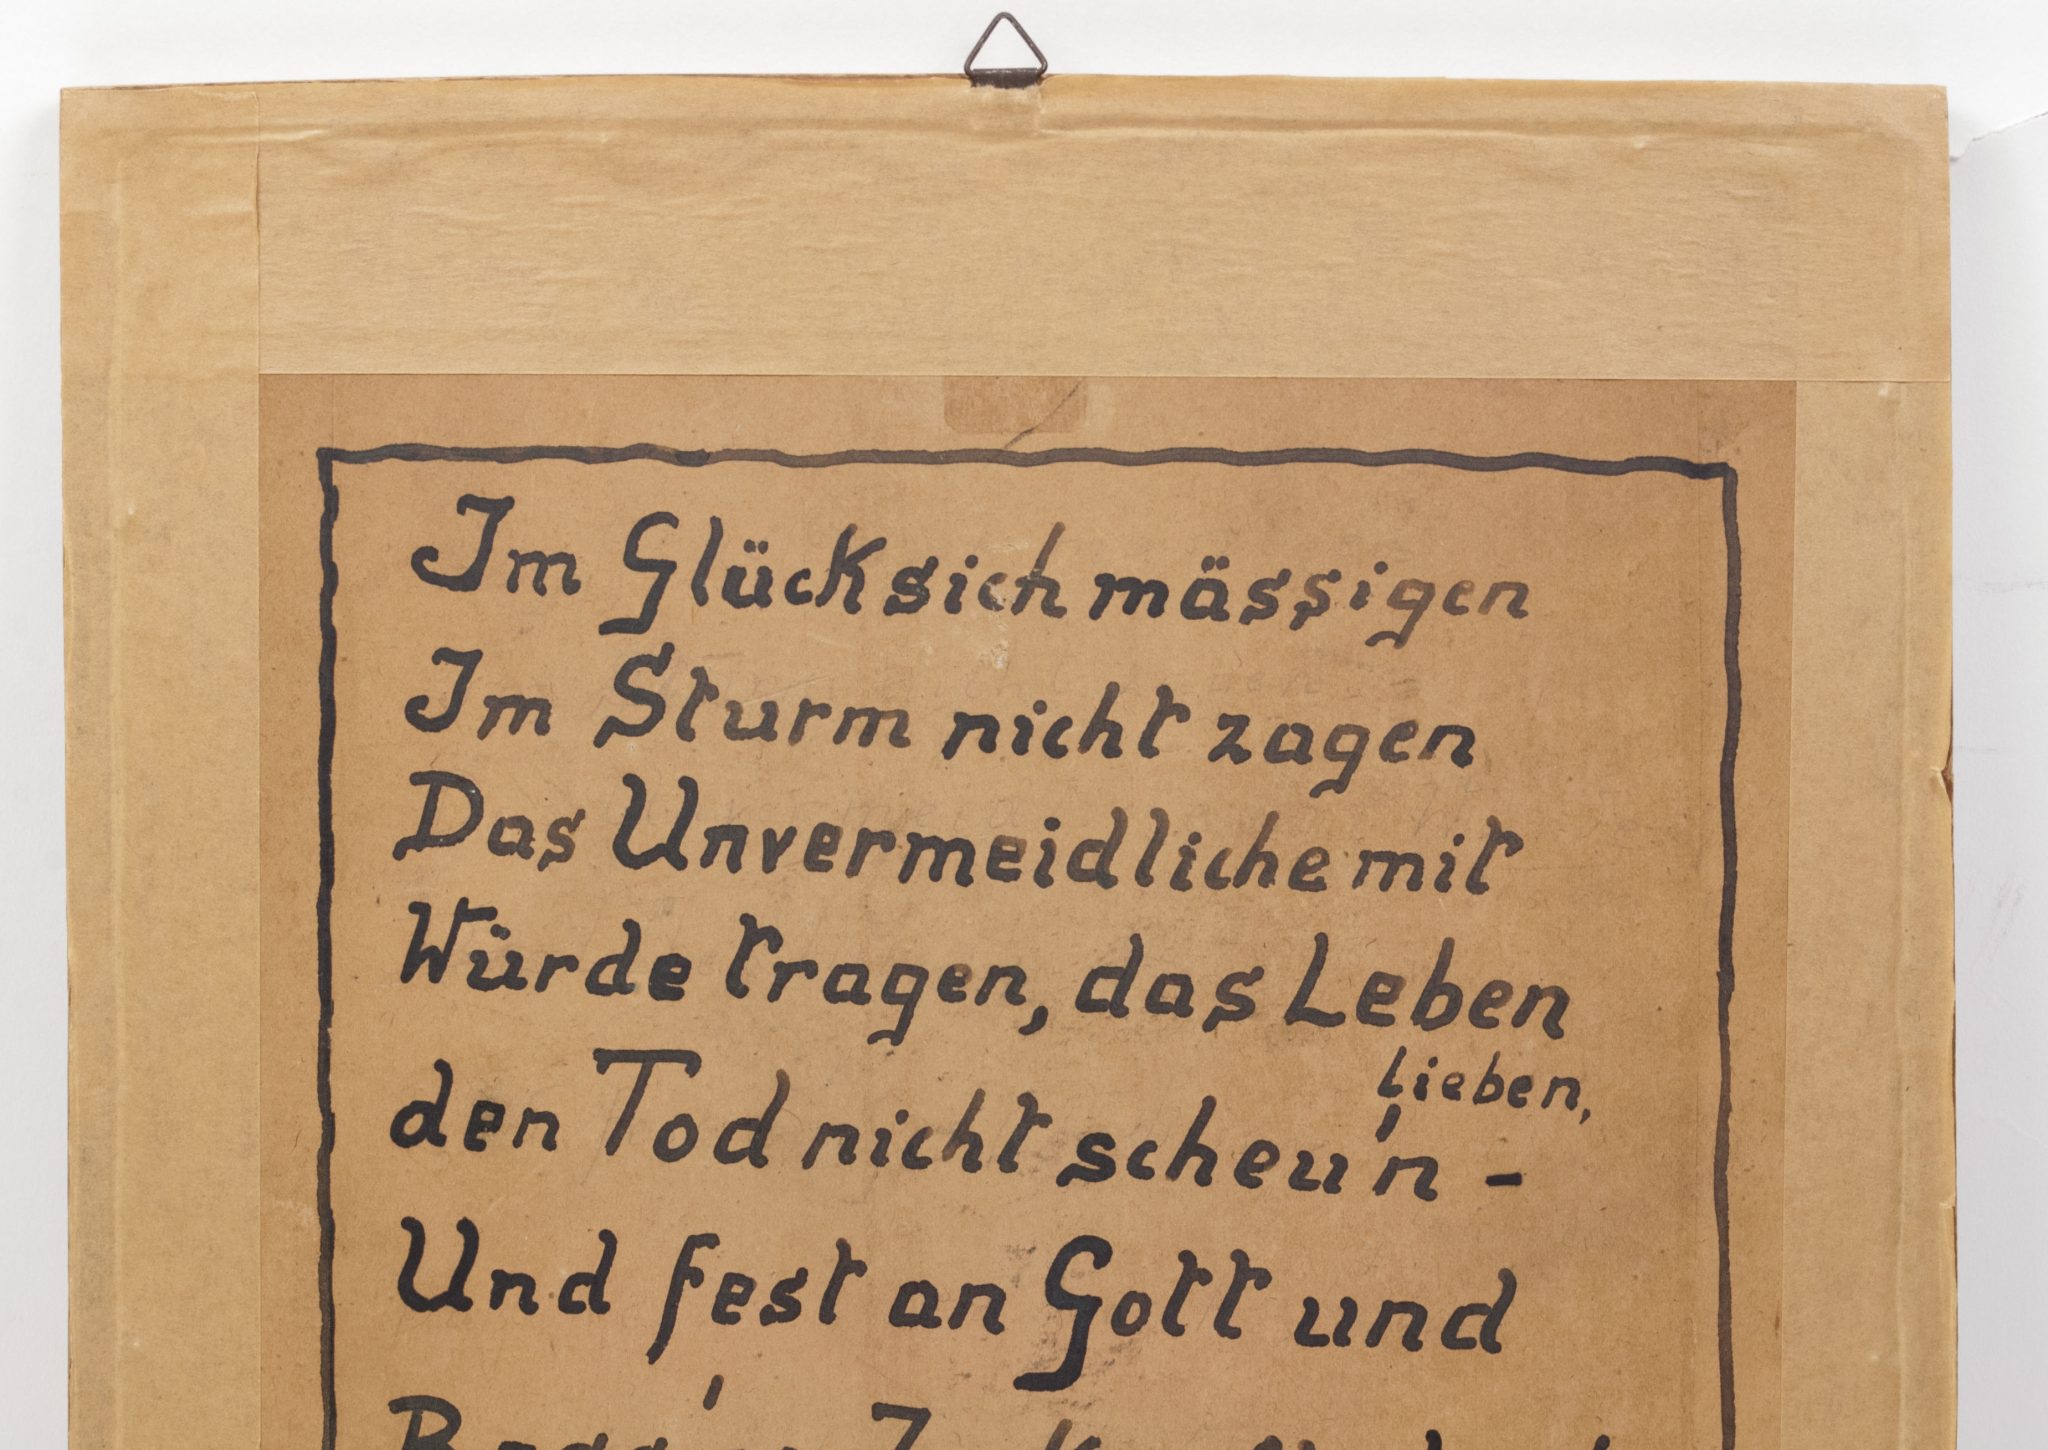 Im Glück sich mässigen
Im Sturm nicht zagen
Das Unvermeidliche mit
Würde tragen, das Leben
lieben,
den Tod nicht scheu'n -
Und fest an Gott und